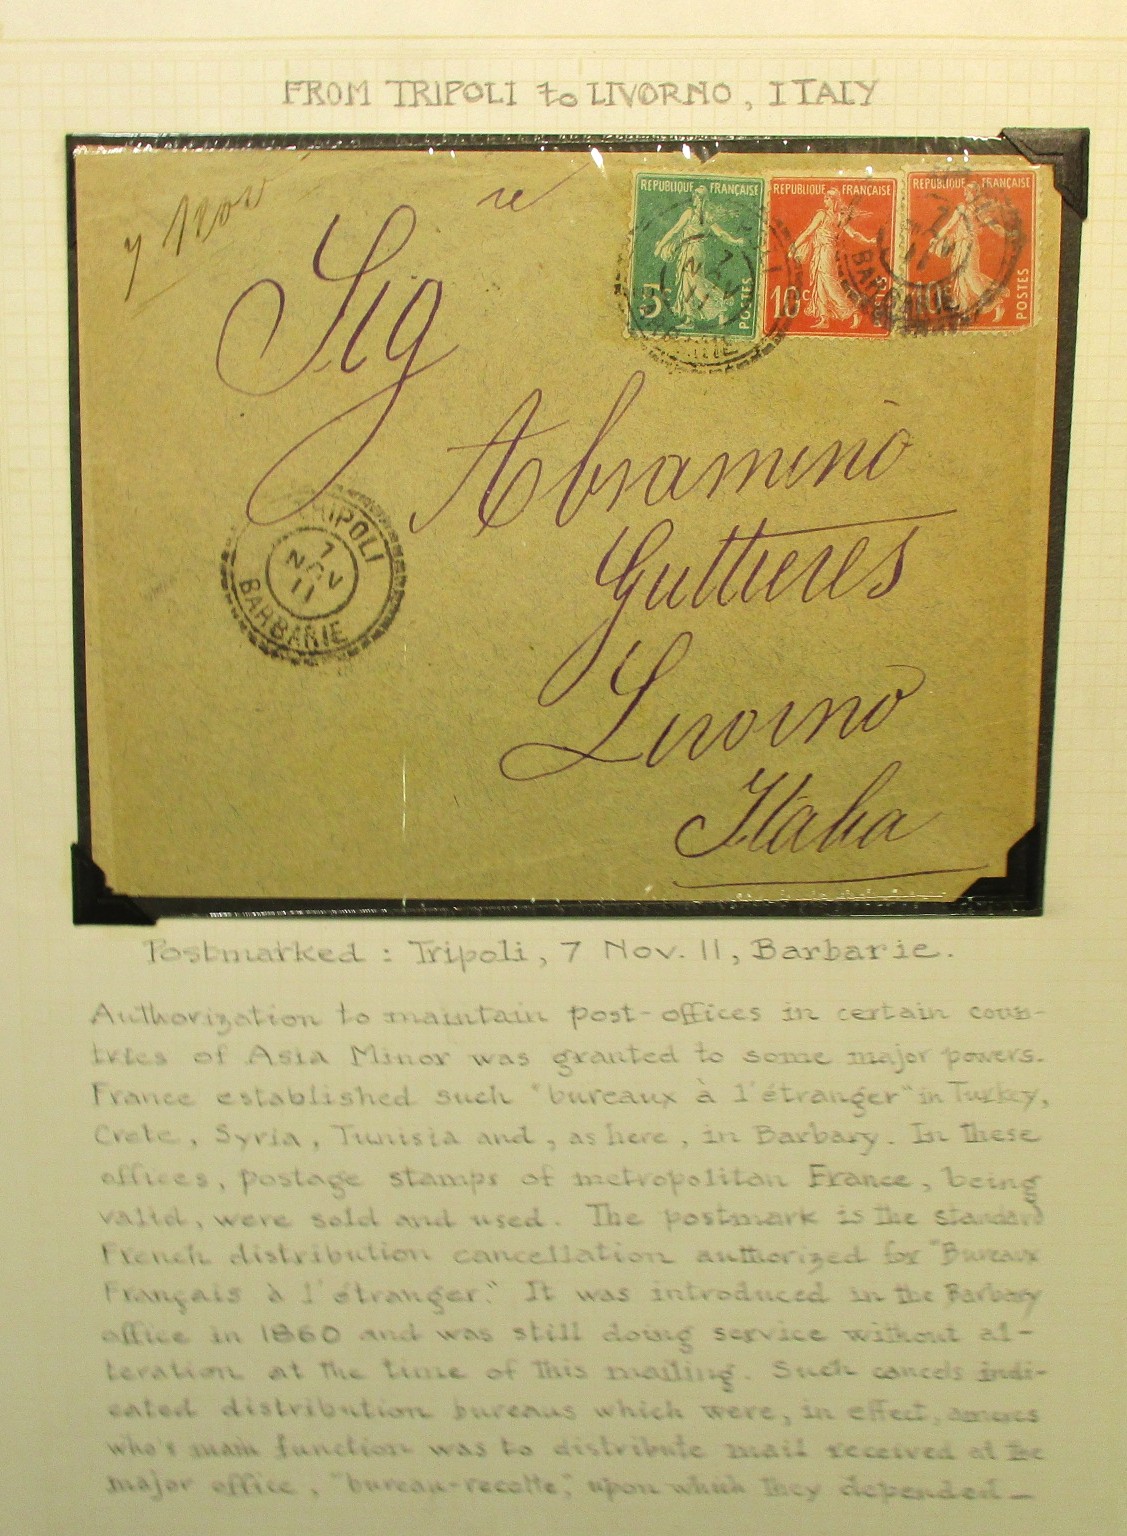 FROM TRIPOLI to LIVORNO, ITALY
REPUBLIQUE FRANÇAISE
5c
POSTES
REPUBLIQUE FRANÇAISE
10c
POSTES
REPUBLIQUE FRANÇAISE
10
POSTES
7
NOV
11
BARBARIE
Sig
Abramino
Guttieres
Livorno
Italia
TRIPOLI
7
NOV
11
BARBARIE
Postmarked: Tripoli, 7 Nov. 11, Barbarie.
Authorization to maintain post-offices in certain coun-
tries of Asia Minor was granted to some major powers.
France established such "bureaux à l'étranger" in Turkey,
Crete, Syria, Tunisia and, as here, in Barbary. In these
offices, postage stamps of metropolitan France, being
valid, were sold and used. The postmark is the standard
French distribution cancellation authorized for "Bureaux
Français à l'étranger." It was introduced in the Barbary
office in 1860 and was still doing service without al-
teration at the time of this mailing. Such cancels indi-
cated distribution bureaus which were, in effect, annexes
who's main function was to distribute mail received at the
major office, "bureau-recette," upon which they depended—